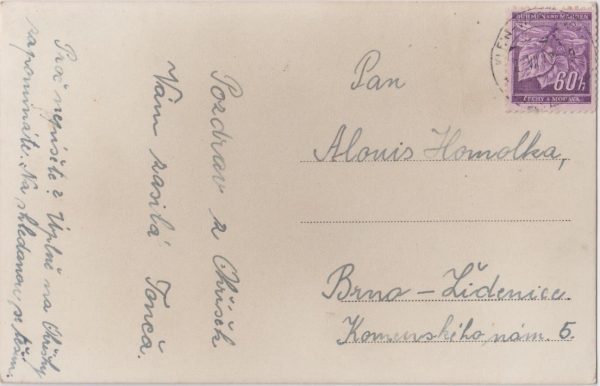 Pozdrav z Chřích
Vám zasílá Tonča.
Proč nepíšete? Úplně na Chřichy
zapomínáte. Na shledanou se těším.
Pan
Alouis Homolka,
Brno – Židenice.
Komenského nám. 5.
BÖHMEN UND MÄHREN
60h
ČECHY A MORAVA